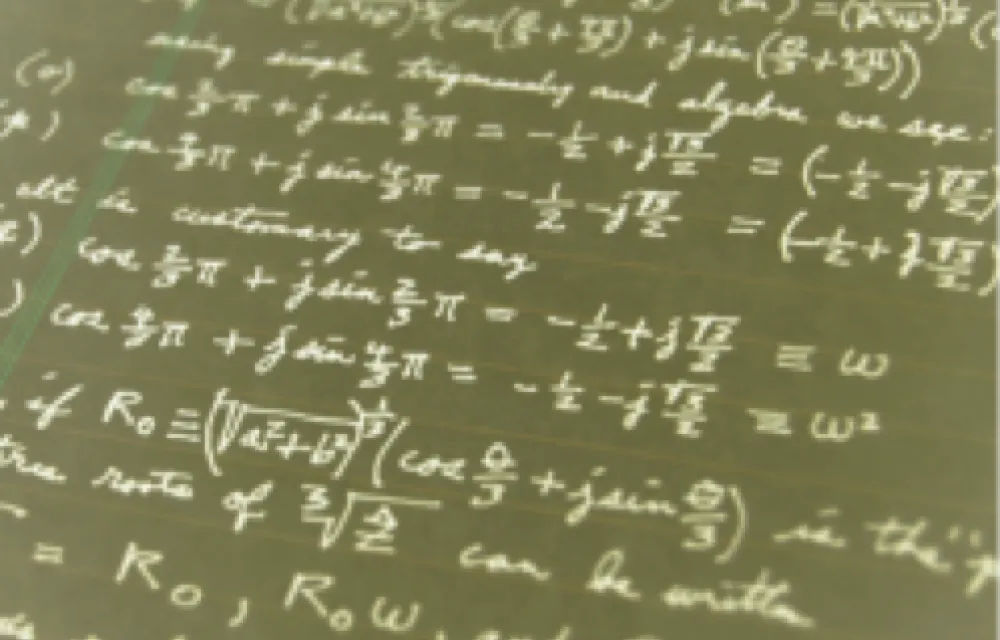 (cos(θ/3 + 4π/3) + j sin(θ/3 + 4π/3))
using simple trigonometry and algebra we see:
cos 2/3 π + j sin 2/3 π = -1/2 + j √3/2 = (-1/2 - j √3/2)
cos 4/3 π + j sin 4/3 π = -1/2 - j √3/2 = (-1/2 + j √3/2)
is customary to say
cos 2/3 π + j sin 2/3 π = -1/2 + j √3/2 ≡ ω
cos 4/3 π + j sin 4/3 π = -1/2 - j √3/2 ≡ ω²
if R₀ ≡ (√a²+b²)^1/3 (cos θ/3 + j sin θ/3) is the "
roots of ³√ can be written
= R₀, R₀ω